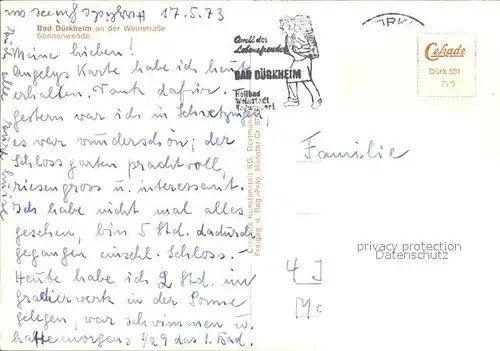 17.5.73
Bad Dürkheim an der Weinstraße
Sonnenwende
Meine lieben!
Angelys Karte habe ich heute
erhalten. Dank dafür.
gestern war ich in Schwetzingen
es war wunderschön; der
Schloss garten prachtvoll,
riesengross u. interessant.
Ich habe nicht mal alles
gesehen, bin 5 Std. dadurch
gegangen einschl. Schloss. -
Heute habe ich 2 Std. im
gradierwerk in der Sonne
gelegen, war schwimmen u.
hatte morgens 1/29 das 1. Bad.
Quell der
Lebensfreude
BAD DÜRKHEIM
Heilbad
Weinstadt
Cekade
Dürk 501
Cramers Kunstanstalt KG, Dortmund
Freigeg. d. Reg.-Präs. Münster
Familie
privacy protection
Datenschutz
4